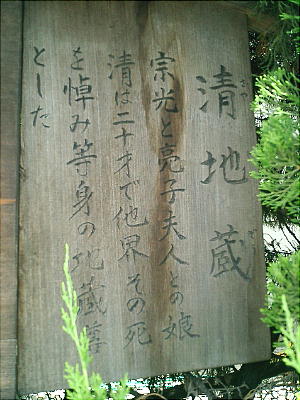 清地蔵
宗光と亮子夫人との娘
清は二十才で他界 その死
を悼み等身の地蔵尊
とした